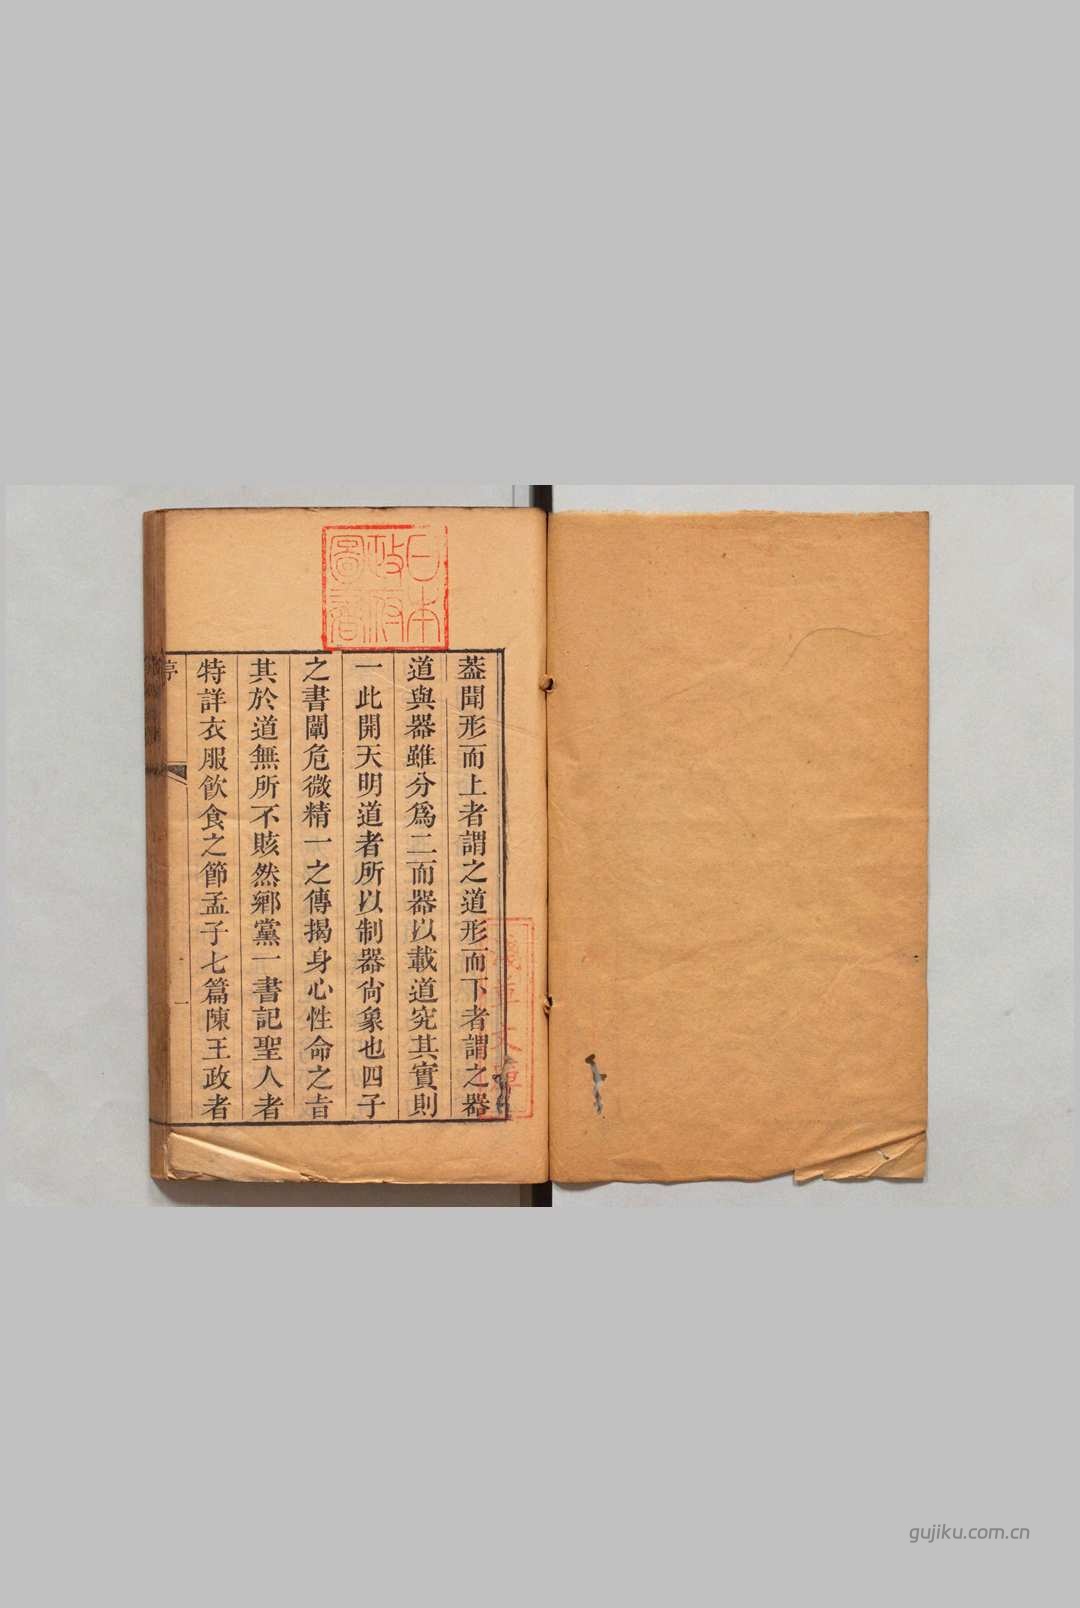 日本
政府
圖書
蓋聞形而上者謂之道形而下者謂之器
道與器雖分爲二而器以載道究其實則
一此開天明道者所以制器尙象也四子
之書闡危微精一之傳揭身心性命之旨
其於道無所不賅然鄉黨一書記聖人者
特詳衣服飮食之節孟子七篇陳王政者
淺草文庫
一
gujiku.com.cn